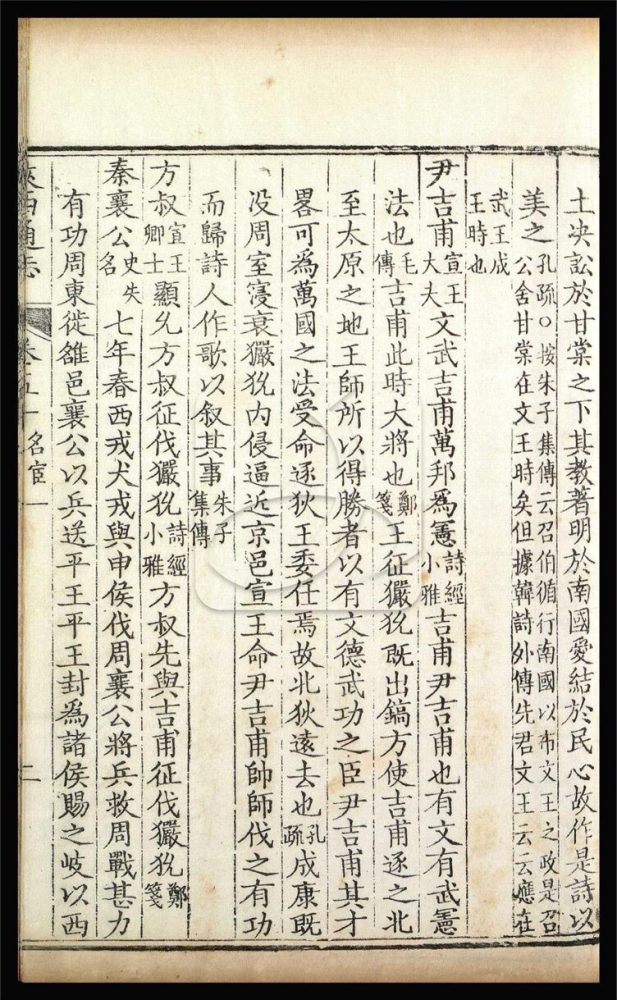 土决訟於甘棠之下其教著明於南國愛結於民心故作是詩以
美之孔疏○按朱子集傳云召伯循行南國以布文王之政是召
公舍甘棠在文王時矣但據韓詩外傳先君文王云云應在
武王成
王時也
尹吉甫宣王大夫文武吉甫萬邦為憲詩經小雅吉甫尹吉甫也有文有武憲
法也毛傳吉甫此時大將也鄭箋王征玁狁既出鎬方使吉甫逐之北
至太原之地王師所以得勝者以有文德武功之臣尹吉甫其才
畧可為萬國之法受命逐狄王委任焉故北狄遠去也孔疏成康既
没周室寖衰玁狁内侵逼近京邑宣王命尹吉甫帥師伐之有功
而歸詩人作歌以叙其事朱子集傳
方叔宣王卿士顯允方叔征伐玁狁詩經小雅方叔先與吉甫征伐玁狁鄭箋
秦襄公史失名七年春西戎犬戎與申侯伐周襄公將兵救周戰甚力
有功周東徙雒邑襄公以兵送平王平王封為諸侯賜之岐以西
陜西通志
卷五十 名宦一
二